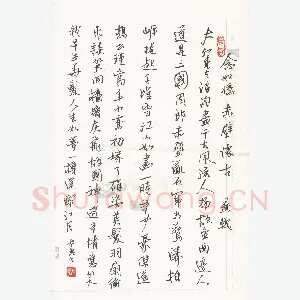 念奴嬌 赤壁懷古 蘇軾
大江東去浪淘盡千古風流人物故壘西邊人
道是三國周郎赤壁亂石穿空驚濤拍
岸捲起千堆雪江山如畫一時多少豪傑遙
想公瑾當年小喬初嫁了雄姿英發羽扇綸
巾談笑間檣櫓灰飛煙滅故國神遊多情應笑
我早生華髮人生如夢一樽還酹江月
ShufaWang.CN